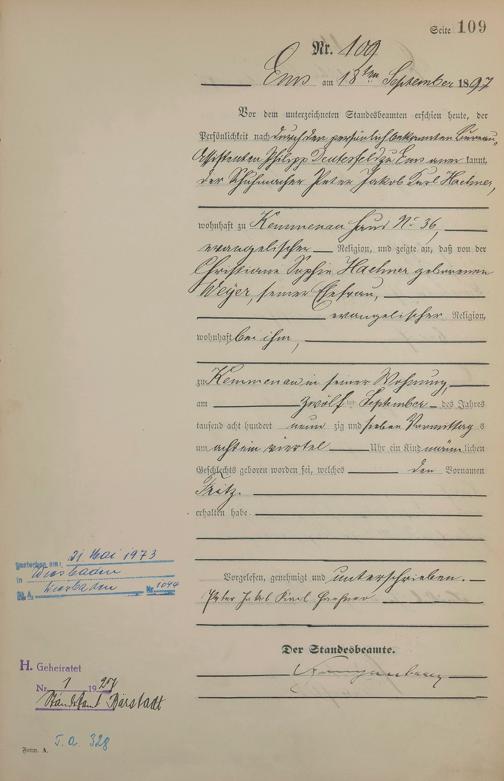 Seite 109
Nr. 109
Ems am 13ten September 1897
Vor dem unterzeichneten Standesbeamten erschien heute, der
Persönlichkeit nach durch den persönlich bekannten Bureau-
Assistenten Philipp zu Ems anerkannt,
der Schuhmacher Peter Jakob Karl Hachner,
wohnhaft zu Kemmenau Haus No 36,
evangelischer Religion, und zeigte an, daß von der
Christiane Sophie Hachner geborenen
Weyer, seiner Ehefrau,
evangelischer Religion,
wohnhaft bei ihm,
zu Kemmenau in seiner Wohnung,
am zwölften September des Jahres
tausend acht hundert neunzig und sieben Vormittags
um acht ein viertel Uhr ein Kind männlichen
Geschlechts geboren worden sei, welches den Vornamen
Fritz.
erhalten habe
Vorgelesen, genehmigt und unterschrieben.
Peter Jakob Karl
Der Standesbeamte.
21 Mai 1973
in Wiesbaden
Wiesbaden Nr. 1044
H. Geheiratet
Nr. 1 19
Standesamt Bärstadt
Form. A.
T.a. 328